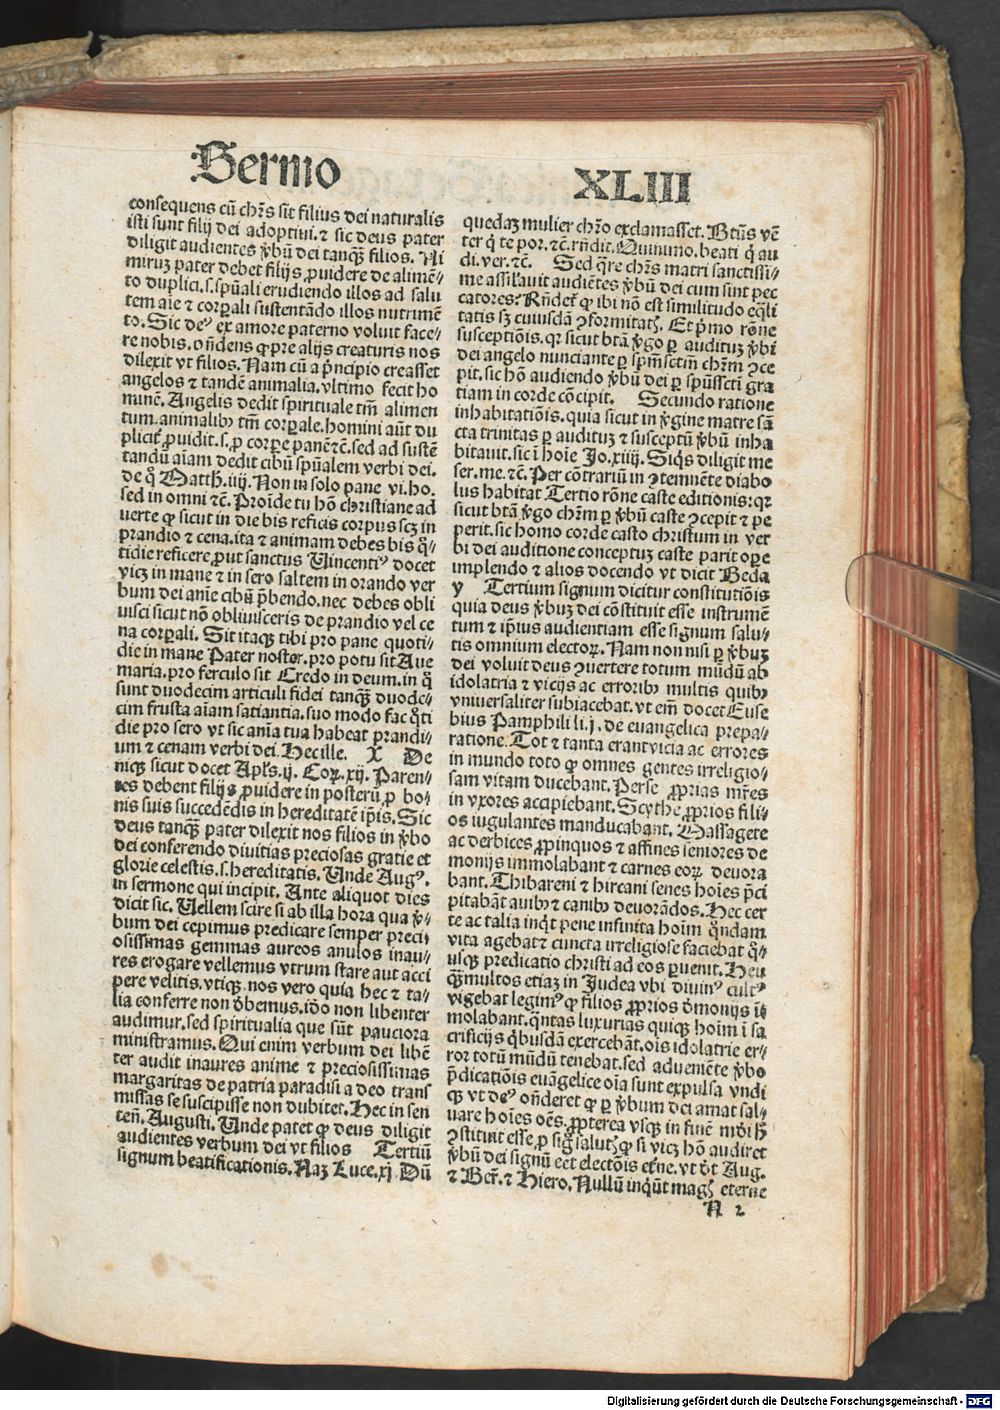 Sermo XLIII
consequens cū chr̄s sit filius dei naturalis
isti sunt filij dei adoptiui. ⁊ sic deus pater
diligit audientes v̄bū dei tanq̄ꝫ filios. Ni
miruꝫ pater debet filijs ꝓuidere de alimē-
to duplici. s. spūali erudiendo illos ad salu
tem aīe ⁊ corꝑali sustentādo illos nutrimē
to. Sic deꝰ ex amore paterno voluit face-
re nobis. oñdens ꝙ pre alijs creaturis nos
dilexit vt filios. Nam cū a p̄ncipio creasset
angelos ⁊ tandē animalia. vltimo fecit ho
minē. Angelis dedit spirituale tm̄ alimen
tum. animalibꝰ tm̄ corꝑale. homini aūt du
plicit̄ ꝓuidit. s. ꝓ corꝑe panē ⁊c̄. sed ad sustē
tandū aīam dedit cibū spūalem verbi dei.
de q̊ Matth. iiij. Non in solo pane vi. ho.
sed in omni ⁊c̄. Proīde tu hō christiane ad
uerte ꝙ sicut in die bis reficis corpus scꝫ in
prandio ⁊ cena. ita ⁊ animam debes bis q̊-
tidie reficere ꝓut sanctus Vincentiꝰ docet
vicꝫ in mane ⁊ in sero saltem in orando ver
bum dei anīe cibū p̄bendo. nec debes obli
uisci sicut nō obliuisceris de prandio vel ce
na corꝑali. Sit itaqꝫ tibi pro pane quoti-
die in mane Pater noster. pro potu sit Aue
maria. pro ferculo sit Credo in deum. in q̊
sunt duodecim articuli fidei tanqꝫ duode-
cim frusta aīam satiantia. suo modo fac q̊ti
die pro sero vt sic anīa tua habeat prandi-
um ⁊ cenam verbi dei. Hec ille. X De
niqꝫ sicut docet Apl̄s. ij. Coꝝ. xij. Paren-
tes debent filijs ꝓuidere in posterū ꝓ bo-
nis suis succedēdis in hereditatē ip̄is. Sic
deus tanqꝫ pater dilexit nos filios in v̄bo
dei conferendo diuitias preciosas gratie et
glorie celestis. s. hereditatis. Vnde Augꝰ.
in sermone qui incipit. Ante aliquot dies
dicit sic. Vellem scire si ab illa hora qua v̄-
bum dei cepimus predicare semper preci
osissimas gemmas aureos anulos inau-
res erogare vellemus vtrum stare aut acci
pere velitis. vtiqꝫ. nos vero quia hec ⁊ ta-
lia conferre non d̄bemus. iō̄o non libenter
audimur. sed spiritualia que sūt pauciora
ministramus. Qui enim verbum dei libē
ter audit inaures anime ⁊ preciosissimas
margaritas de patria paradisi a deo trans
missas se suscipisse non dubitet. Hec in sen
ten̄. Augusti. Vnde patet ꝙ deus diligit
audientes verbum dei vt filios Tertiū
signum beatificationis. Naꝫ Luce. xj Dū
quedaꝫ mulier chr̄o exclamasset. Btūs vē
ter q̄ te por. ⁊c̄. rn̄dit. Quinuno. beati q̄ au
di. ver. ⁊c̄. Sed q̄re chr̄s matri sanctissi-
me assil̄auit audiētes v̄bū dei cum sint pec
catores: Rn̄det̄ ꝙ ibi nō est similitudo eq̄li
tatis sꝫ cuiusdā ꝯformitatꝭ. Et p̄mo rōne
susceptiōis. qꝛ sicut btā v̄go ꝑ audituꝫ v̄bi
dei angelo nunciante ꝑ spm̄sctm̄ chr̄m ꝯce
pit. sic hō audiendo v̄bū dei ꝑ spūssctī gra
tiam in corde cōcipit. Secundo ratione
inhabitatiōis. quia sicut in v̄gine matre sā
cta trinitas ꝑ audituꝫ ⁊ susceptū v̄bū inha
bitauit. sic ī hoīe Jo. xiiij. Siq̄s diligit me
ser. me. ⁊c̄. Per cōtrariū in ꝯtemnēte diabo
lus habitat Tertio rōne caste editionis: qꝛ
sicut btā v̄go chr̄m ꝑ v̄bū caste ꝯcepit ⁊ pe
perit. sic homo corde casto christum in ver
bi dei auditione conceptuꝫ caste parit oꝑe
implendo ⁊ alios docendo vt dicit Beda
y Tertium signum dicitur constitutiōis
quia deus v̄buꝫ dei cōstituit esse instrumē
tum ⁊ ip̄ius audientiam esse signum salu-
tis omnium electoꝝ. Nam non nisi ꝑ v̄buꝫ
dei voluit deus ꝯuertere totum mūdū ab
idolatria ⁊ vicijs ac erroribꝰ multis quibꝰ
vniuersaliter subiacebat. vt em̄ docet Euse
bius Pamphili li. j. de euangelica prepa-
ratione. Tot ⁊ tanta erant vicia ac errores
in mundo toto ꝙ omnes gentes irreligio-
sam vitam ducebant. Perse ꝓprias mr̄es
in vxores accipiebant. Scythe ꝓprios fili-
os iugulantes manducabant. Massagete
ac derbices ꝓpinquos ⁊ affines seniores de
monijs immolabant ⁊ carnes eoꝝ deuora
bant. Thibareni ⁊ hircani senes hoīes p̄ci
pitabāt auibꝰ ⁊ canibꝰ deuorādos. Hec cer
te ac talia inq̄t pene infinita hoīm q̄ndam
vita agebat ⁊ cuncta irreligiose faciebat q̊-
usqꝫ predicatio christi ad eos ꝑuenit. Heu
qꝫmultos etiaꝫ in Judea vbi diuinꝰ cultꝰ
vigebat legimꝰ ꝙ filios ꝓprios d̄monijs ī-
molabant. q̄ntas luxurias quiqꝫ hoīm ī sa
crificijs q̄busdā exercebāt. oīs idolatrie er-
ror totū mūdū tenebat. sed adueniēte v̄bo
p̄dicatiōis euāgelice oīa sunt expulsa vndi
qꝫ vt deꝰ on̄deret ꝙ ꝑ v̄bum dei amat sal-
uare hoīes oēs. ꝓpterea vsqꝫ in finē mōi hꝭ
ꝯstituit esse ꝓ sigᷠ salutꝭ ꝙ si vicꝫ hō audiret
v̄bū dei signū eēt electōis et̄ne. vt d̄t Aug.
⁊ Ber̄. ⁊ Hiero. Nullū inq̄ūt magꝭ eterne
N 2
Digitalisierung gefördert durch die Deutsche Forschungsgemeinschaft - DFG